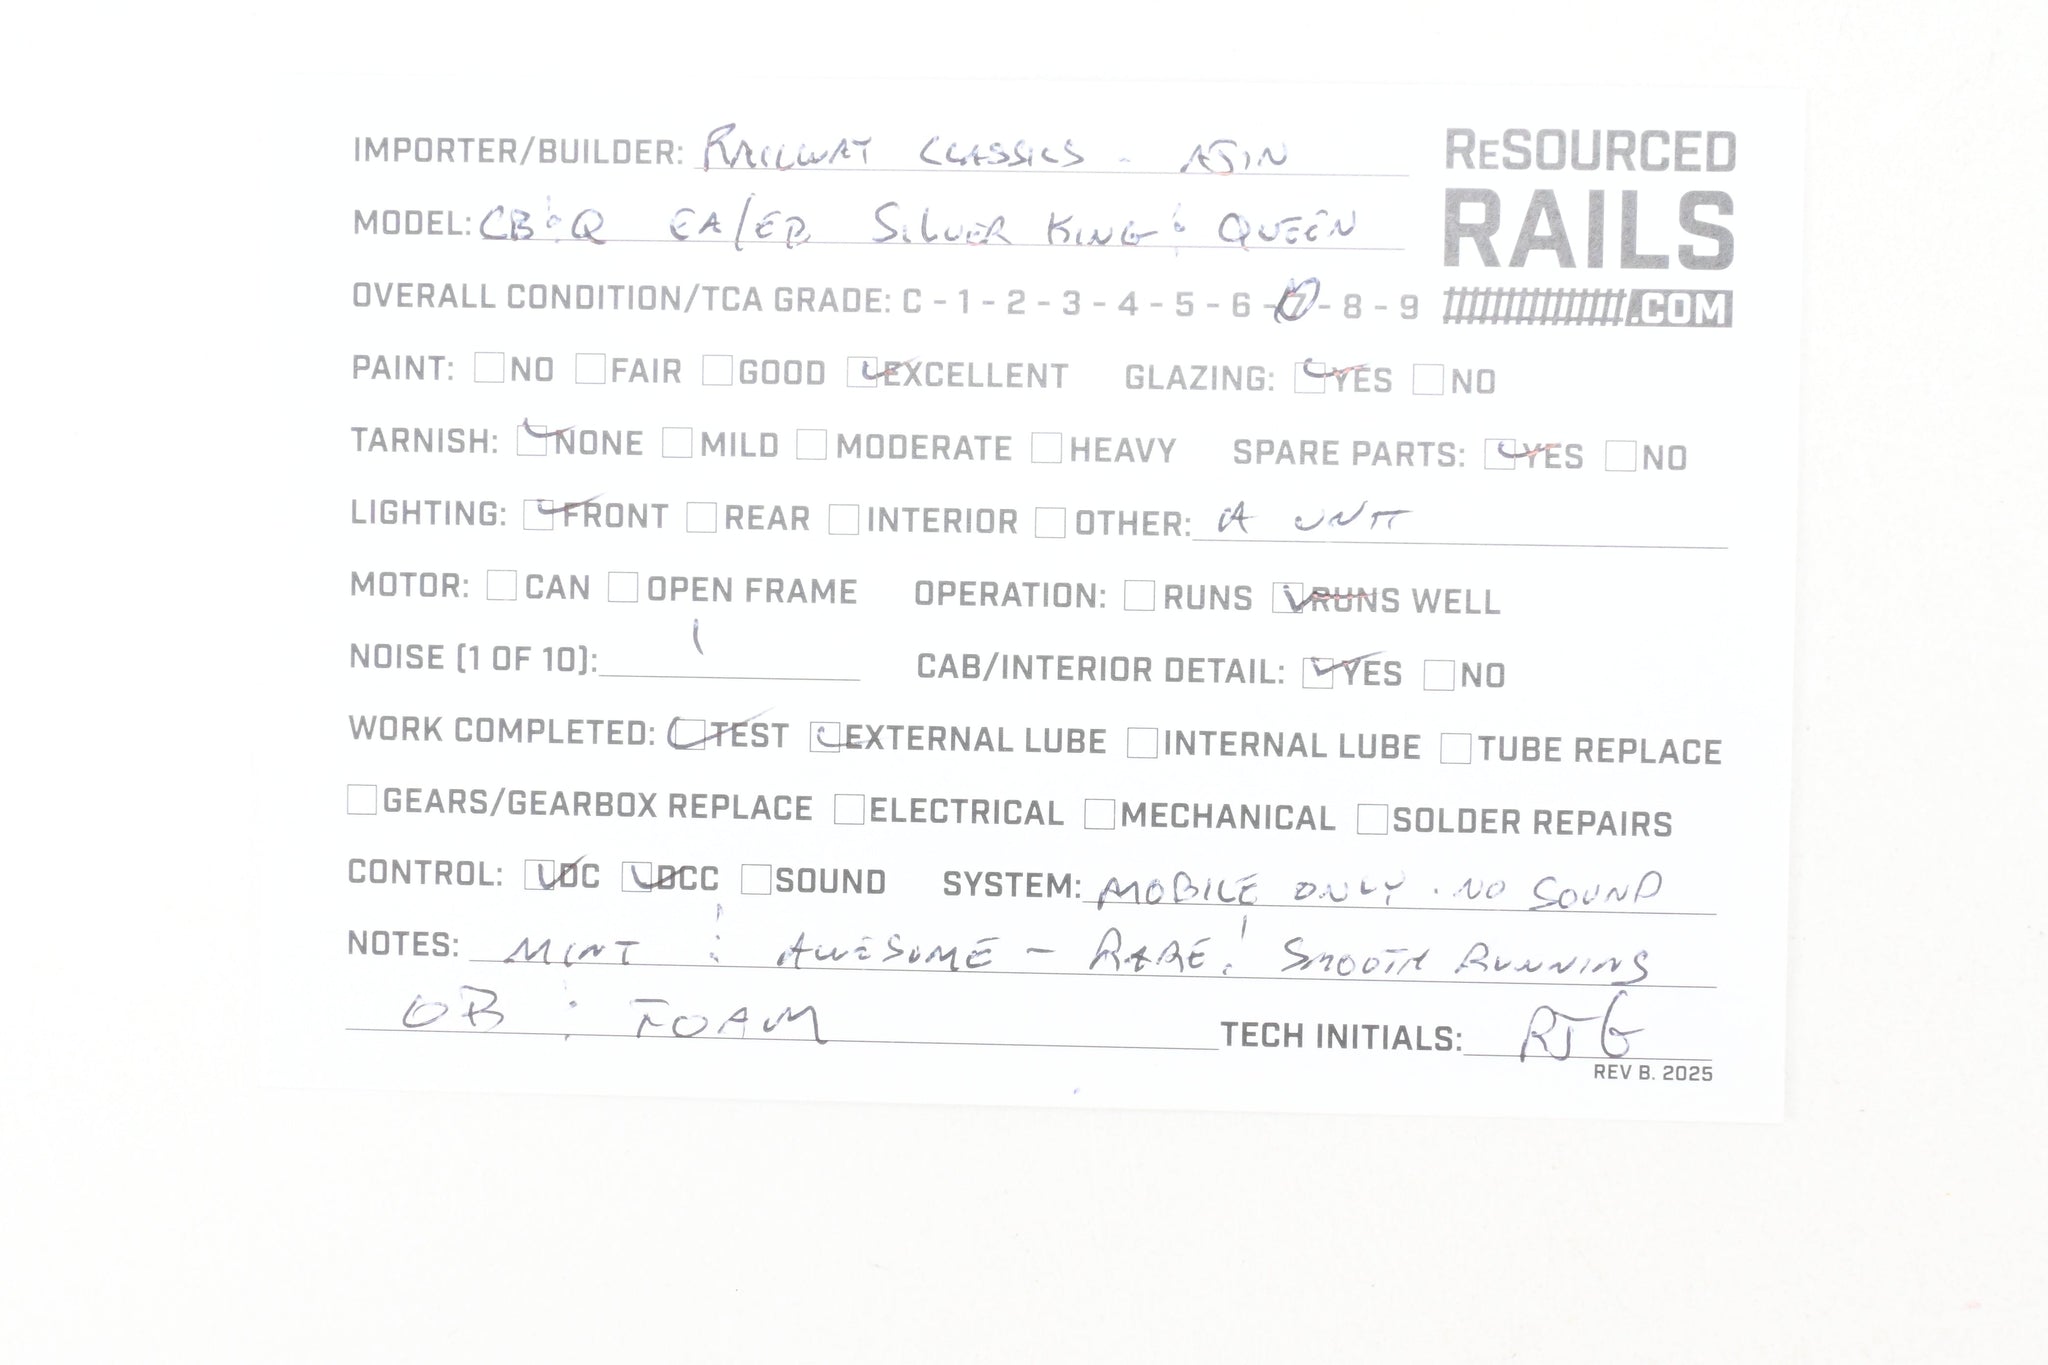 IMPORTER/BUILDER: RAILWAY CLASSICS - AJIN
RESOURCED
RAILS
.COM
MODEL: CB&Q EA/EB SILVER KING & QUEEN
OVERALL CONDITION/TCA GRADE: C - 1 - 2 - 3 - 4 - 5 - 6 - 7 - 8 - 9
PAINT: NO FAIR GOOD EXCELLENT GLAZING: YES NO
TARNISH: NONE MILD MODERATE HEAVY SPARE PARTS: YES NO
LIGHTING: FRONT REAR INTERIOR OTHER: A UNIT
MOTOR: CAN OPEN FRAME OPERATION: RUNS RUNS WELL
NOISE (1 OF 10): 1 CAB/INTERIOR DETAIL: YES NO
WORK COMPLETED: TEST EXTERNAL LUBE INTERNAL LUBE TUBE REPLACE
GEARS/GEARBOX REPLACE ELECTRICAL MECHANICAL SOLDER REPAIRS
CONTROL: DC DCC SOUND SYSTEM: MOBILE ONLY. NO SOUND
NOTES: MINT & AWESOME - RARE! SMOOTH RUNNING
OB & FOAM TECH INITIALS: RJG
REV B. 2025